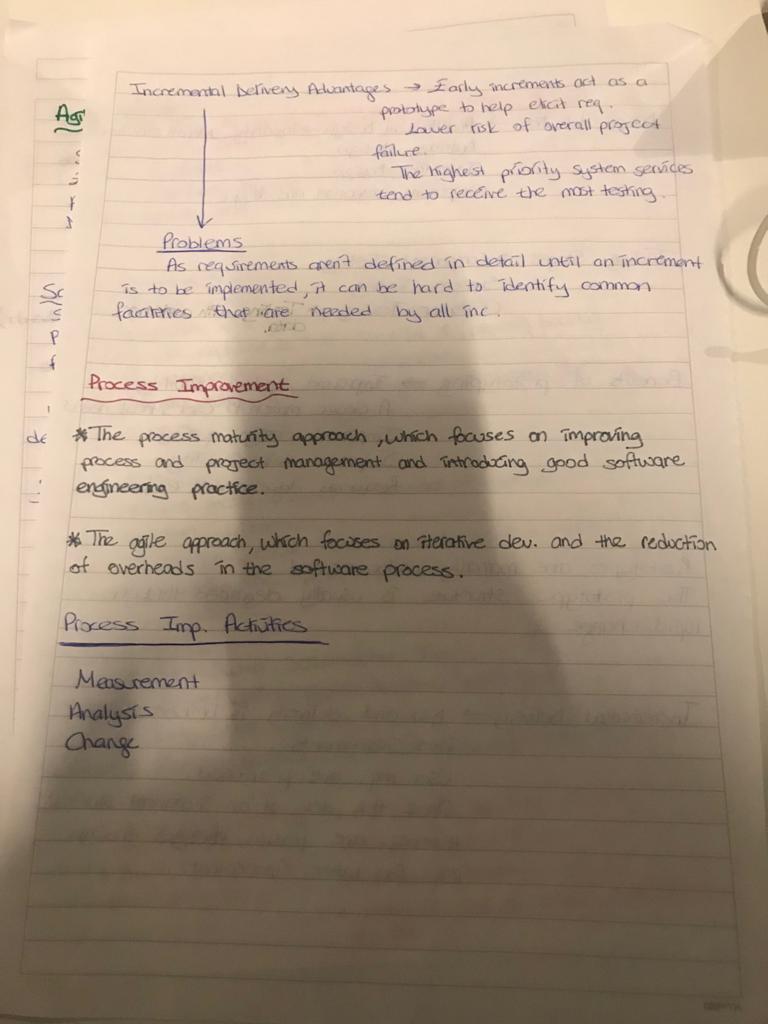 Incremental Delivery Advantages → Early increments act as a
prototype to help elicit req.
Lower risk of overall project
failure.
The highest priority system services
tend to receive the most testing.
Problems
As requirements aren't defined in detail until an increment
is to be implemented, it can be hard to identify common
facilities that are needed by all inc.
Process Improvement
* The process maturity approach, which focuses on improving
process and project management and introducing good software
engineering practice.
* The agile approach, which focuses on iterative dev. and the reduction
of overheads in the software process.
Process Imp. Activities
Measurement
Analysis
Change